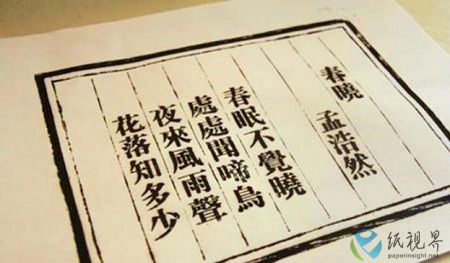 春曉 孟浩然
春眠不覺曉
處處聞啼鳥
夜來風雨聲
花落知多少
纸视界
paperinsight.net